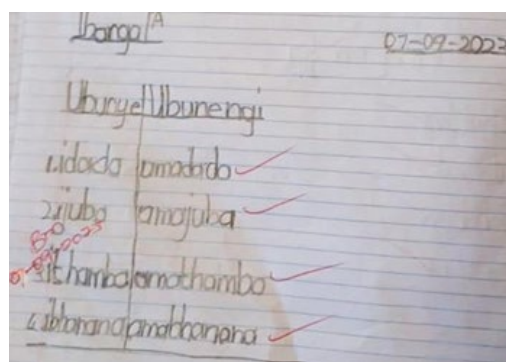 Ibanga A 07-09-2023
Ubunye Ubunengi
1. idada amadada
2. ijuba amajuba
07-09-2023
3. ithambo amathambo
4. ibhanana amabhanana